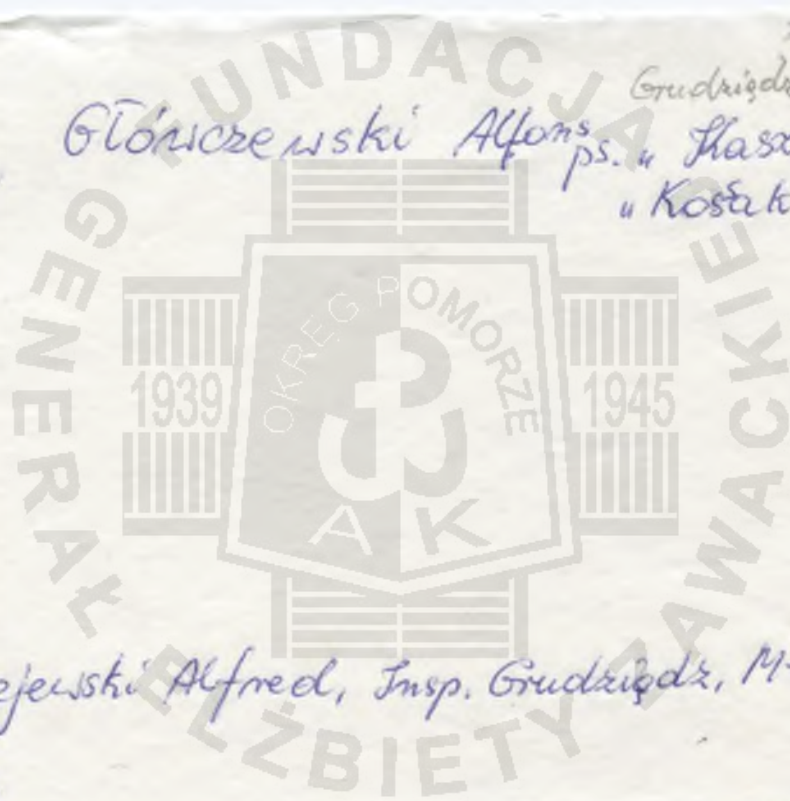 Grudziądz
Główczewski Alfons
ps. „
„Kosa
ejewski Alfred, Insp. Grudziądz, M-
FUNDACJA GENERAŁ ELŻBIETY ZAWACKIEJ
OKRĘG POMORZE
1939
1945
AK